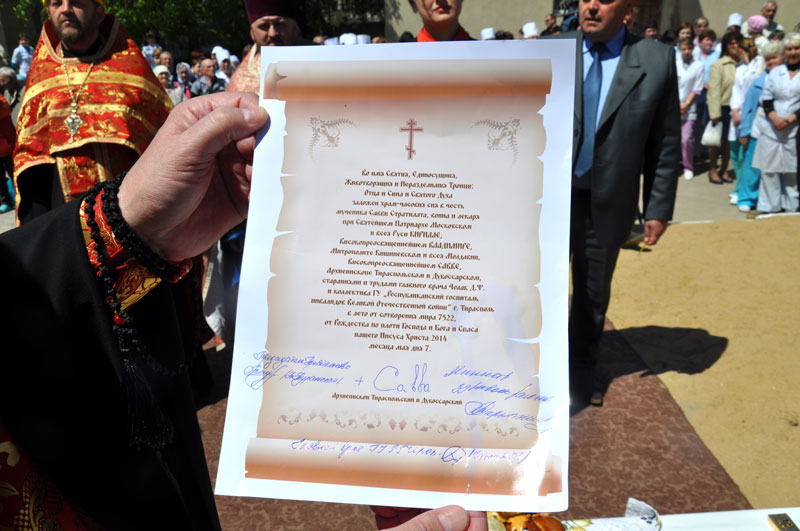 Во имя Святыя, Единосущныя,
Животворящия и Нераздельныя Троицы:
Отца и Сына и Святого Духа
заложен храм-часовня сия в честь
мученика Саввы Стратилата, воина и лекаря
при Святейшем Патриархе Московском
и всея Руси КИРИЛЛЕ,
Высокопреосвященнейшем ВЛАДИМИРЕ,
Митрополите Кишиневском и всея Молдавии,
Высокопреосвященнейшем САВВЕ,
Архиепископе Тираспольском и Дубоссарском,
стараниями и трудами главного врача Чолак Д.Ф.
и коллектива ГУ „Республиканский госпиталь
инвалидов Великой Отечественной войны" г. Тирасполь
в лето от сотворения мира 7522,
от Рождества по плоти Господа и Бога и Спаса
нашего Иисуса Христа 2014
месяца мая дня 7.
+ Савва
Министр
Архиепископ Тираспольский и Дубоссарский